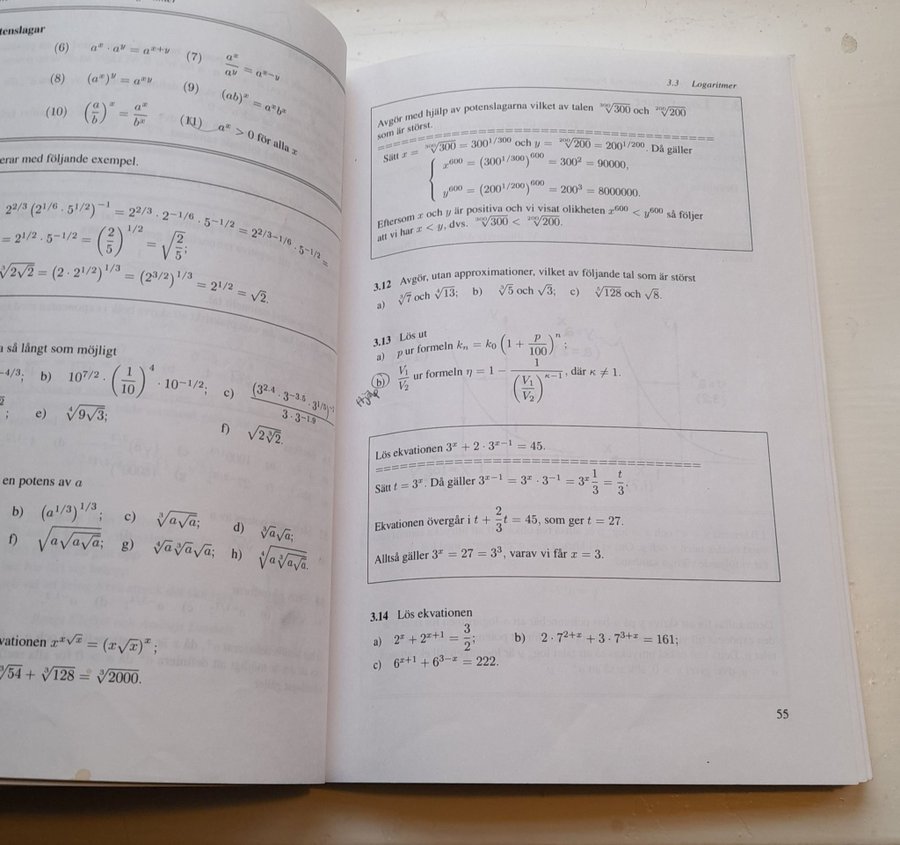 tenslagar
(6) a^x · a^y = a^{x+y} (7) a^x/a^y = a^{x−y}
(8) (a^x)^y = a^{xy} (9) (ab)^x = a^x b^x
(10) (a/b)^x = a^x/b^x (11) a^x > 0 för alla x
erar med följande exempel.
2^{2/3} (2^{1/6} · 5^{1/2})^{−1} = 2^{2/3} · 2^{−1/6} · 5^{−1/2} = 2^{2/3−1/6} · 5^{−1/2} =
= 2^{1/2} · 5^{−1/2} = (2/5)^{1/2} = √(2/5);
∛(2√2) = (2 · 2^{1/2})^{1/3} = (2^{3/2})^{1/3} = 2^{1/2} = √2.
a så långt som möjligt
^{−4/3}; b) 10^{7/2} · (1/10)^4 · 10^{−1/2}; c)
e) ∜(9√3); f) √(2∛2).
en potens av a
b) (a^{1/3})^{1/3}; c) ∛(a√a); d) ∛a√a;
f) √(a√(a√a)); g) ∜a ∛a √a; h)
vationen x^{x√x} = (x√x)^x;
∛54 + ∛128 = ∛2000.
3.3 Logaritmer
Avgör med hjälp av potenslagarna vilket av talen ³⁰⁰√300 och ²⁰⁰√200
som är störst.
Sätt x = ³⁰⁰√300 = 300^{1/300} och y = ²⁰⁰√200 = 200^{1/200}. Då gäller
x^{600} = (300^{1/300})^{600} = 300^2 = 90000,
y^{600} = (200^{1/200})^{600} = 200^3 = 8000000.
Eftersom x och y är positiva och vi visat olikheten x^{600} < y^{600} så följer
att vi har x < y, dvs. ³⁰⁰√300 < ²⁰⁰√200.
3.12 Avgör, utan approximationer, vilket av följande tal som är störst
a) ∛7 och ∜13; b) ∛5 och √3; c) och √8.
3.13 Lös ut
a) p ur formeln k_n = k_0 (1 + p/100)^n;
b) V_1/V_2 ur formeln η = 1 − 1/(V_1/V_2)^{κ−1}, där κ ≠ 1.
Lös ekvationen 3^x + 2 · 3^{x−1} = 45.
Sätt t = 3^x. Då gäller 3^{x−1} = 3^x · 3^{−1} = 3^x 1/3 = t/3.
Ekvationen övergår i t + 2/3 t = 45, som ger t = 27.
Alltså gäller 3^x = 27 = 3^3, varav vi får x = 3.
3.14 Lös ekvationen
a) 2^x + 2^{x+1} = 3/2; b) 2 · 7^{2+x} + 3 · 7^{3+x} = 161;
c) 6^{x+1} + 6^{3−x} = 222.
55